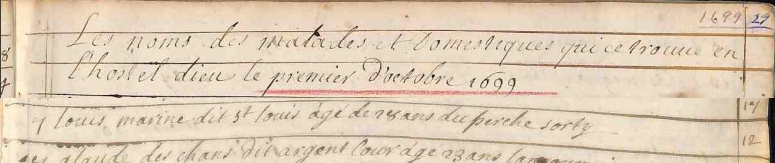 1699 29
Les noms des malades et Domestiques qui ce trouve en
8
l'hostel dieu le premier D'octobre 1699
louis marine dit st louis agé de 28 ans du perche sorty
12
glaude des chans dit argent cour agé 23 ans